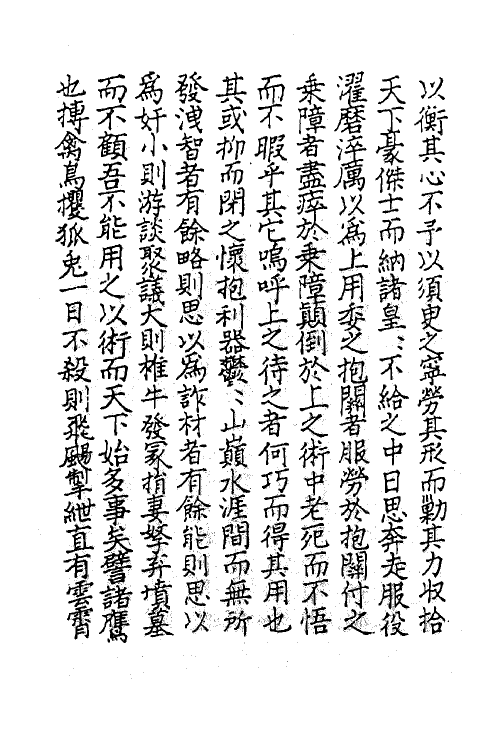 以衡其心不予以須臾之寧勞其形而勦其力収拾
天下豪傑士而納諸皇〻不給之中日思奔走服役
濯磨淬厲以爲上用委之抱關者服勞於抱關付之
乗障者盡瘁於乗障顛倒於上之術中老死而不悟
而不暇乎其它嗚呼上之待之者何巧而得其用也
其或抑而閉之懷抱利器鬱〻山巔水涯間而無所
發洩智者有餘略則思以爲詐材者有餘能則思以
爲奸小則游談聚議大則椎牛發冡捐妻孥弃墳墓
而不顧吾不能用之以術而天下始多事矣譬諸鷹
也搏禽鳥攫狐兎一日不殺則飛颺掣紲直有雲霄